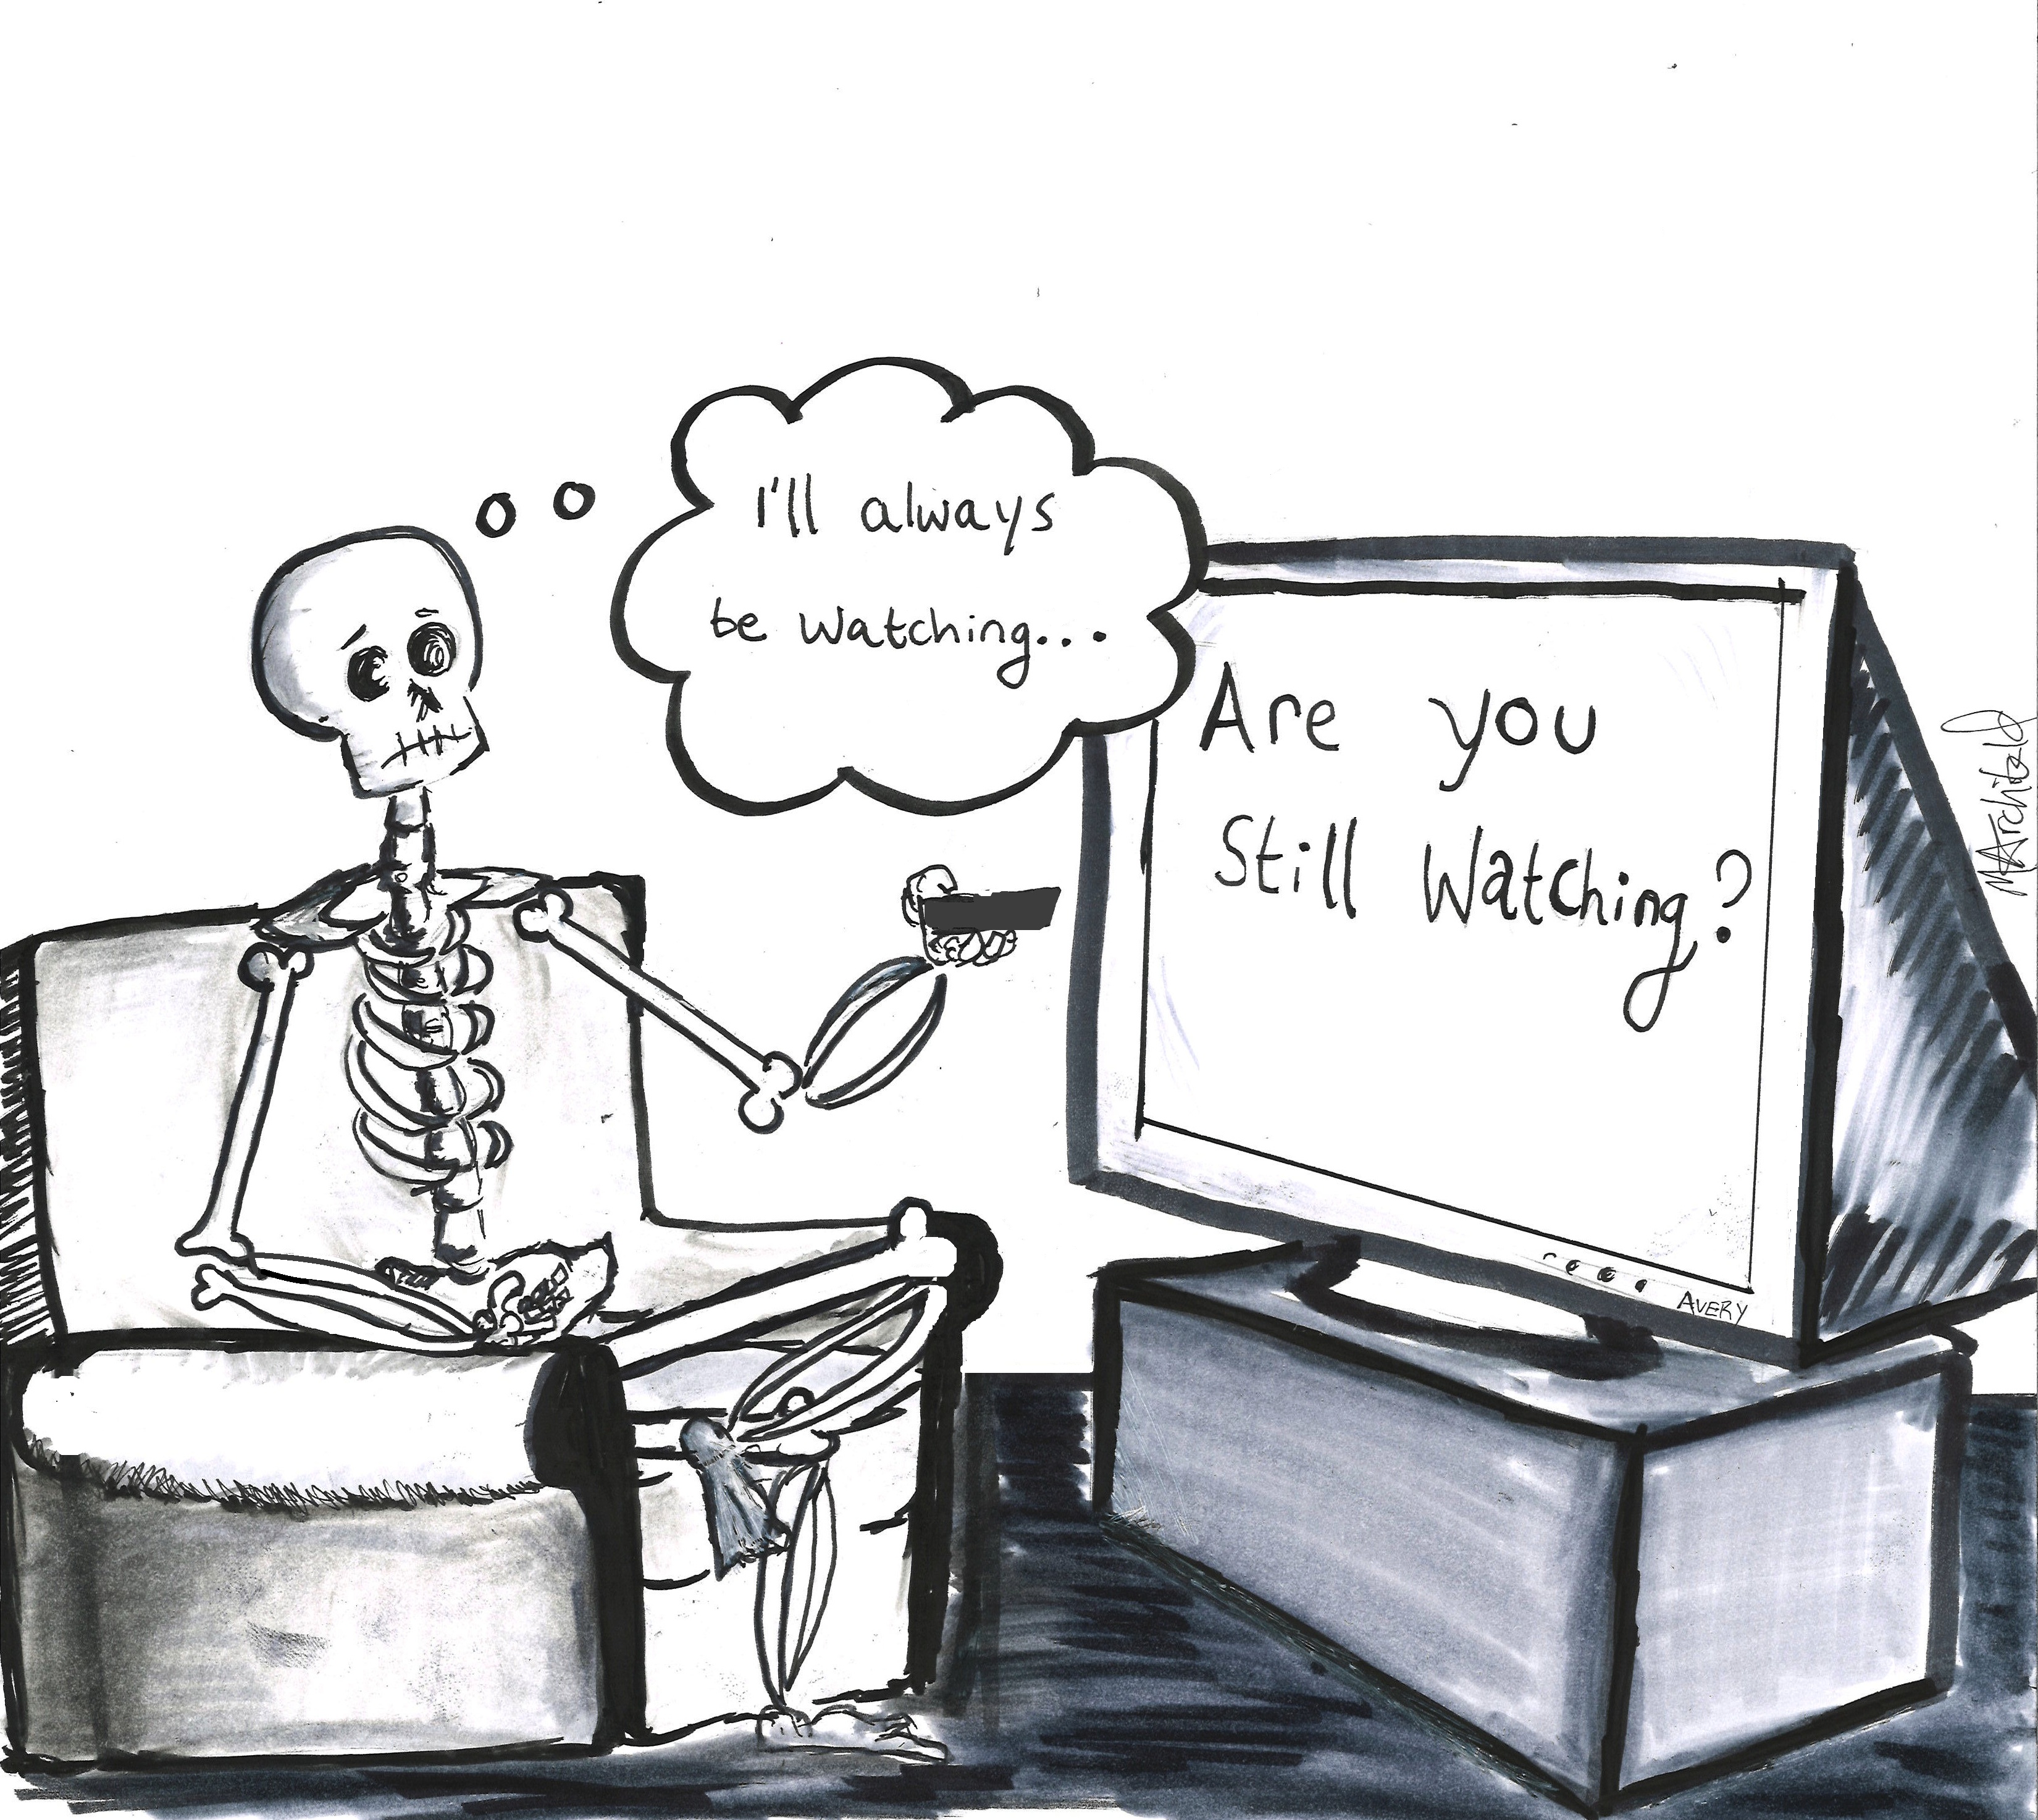 I'll always
be watching...
Are you
Still Watching?
AVERY